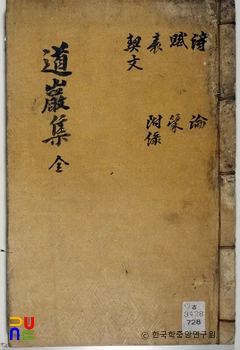 詩 論
賦 策
表 附錄
契文
道巖集 全
古
3428
728
© 한국학중앙연구원